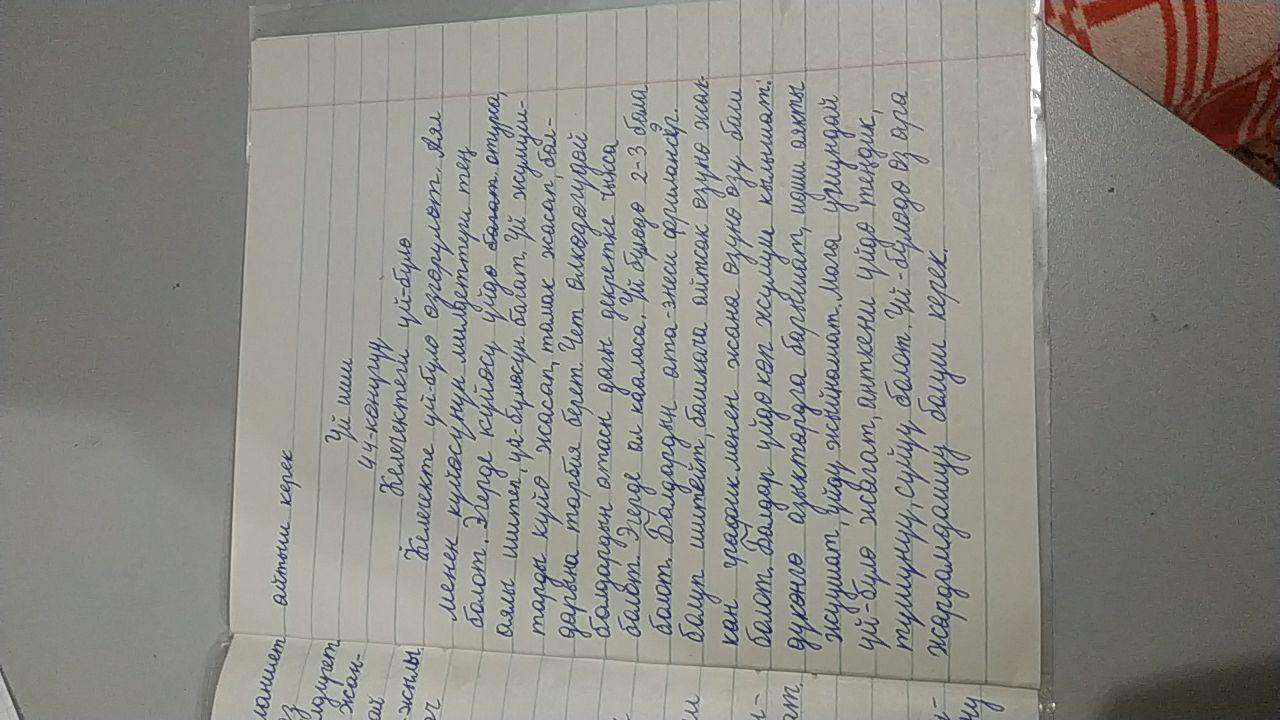 айтыш керек
Үй иши
44-көнүгүү
Келечектеги үй-бүлө
Келечекте үй-бүлө өзгөрүлөт. Аял
менен күйөөсүнүн милдеттери тең
болот. Эгерде күйөөсү үйдө болот отурса,
аялы иштеп, үй-бүлөсүн багат. Үй жумуш-
тарды күйөө жасап, тамак жасап, бал-
дарына тарбия берет. Чет өлкөдөгүдөй
балдардын атасы дагы декретке чыкса
болот. Эгерде ал кааласа. Үй бүлөдө 2-3 бала
болот. Балдардын ата-энеси фрилансер
болуп иштейт, башкача айтсак өзүнө жак-
кан график менен жана өзүнө өзү баш
болот. Балдар үйдө көп жумуш кылышат:
дүкөнгө азыктарга барышат, идиш аякты
жуушат, үйдү жыйнашат. Мага ушундай
үй-бүлө жагат, анткени үйдө теңдик,
түшүнүү, сүйүү болот. Үй-бүлөдө өз ара
жардамдашуу болуш керек.
ланиет
ез
лолучет
жан-
ай
-жылы.
ну